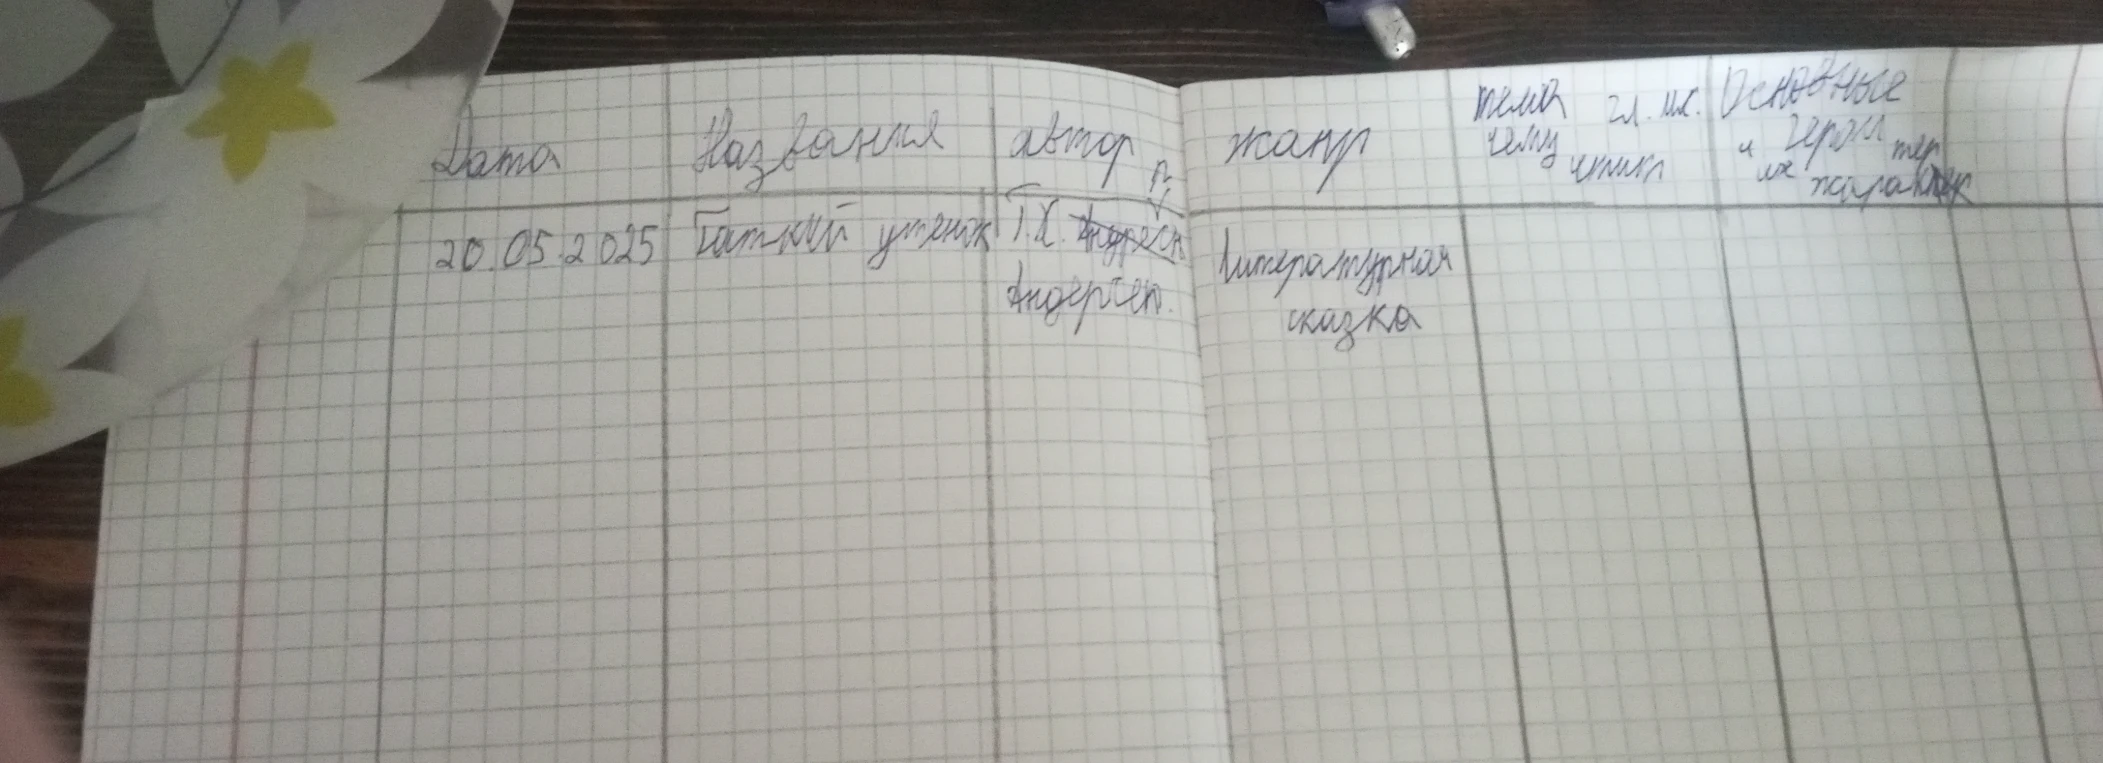 Дата
Названия
автор
жанр
тема гл. мс.
чему учит
Основные
герои
и их характер
20.05.2025
Гаткий утенок
Г.Х.
Андерсен.
Литературная
сказка